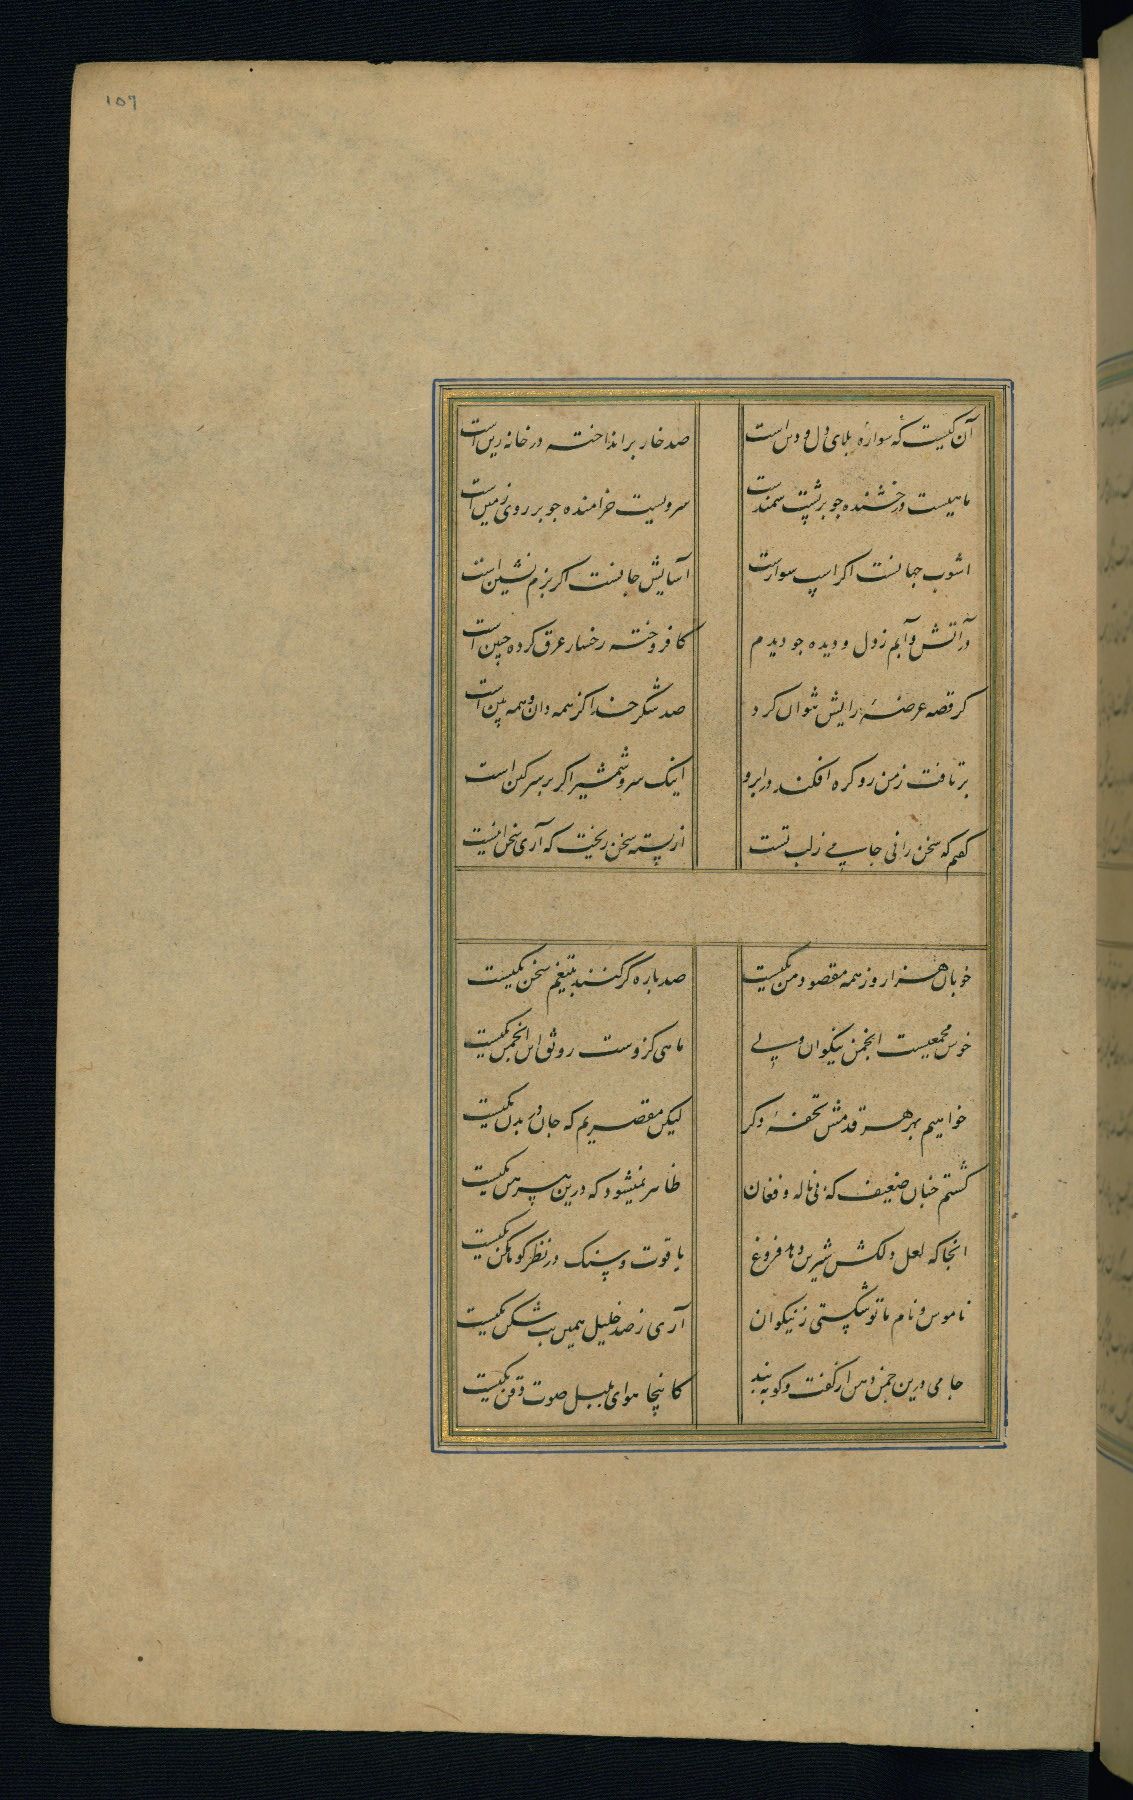 ۱۵۶
آن کیست که سواره بلای دل و دین است صد خار برانداخته در خانه زین است
ماهیست درخشنده چو بر پشت سمندست سرویست خرامنده چو بر روی زمین است
اشوب جهانست اکر اسپ سوارست آسایش جانست اکر بزم نشین است
در آتش و آبم ز دل و دیده چو دیدم کافروخته رخسار عرق کرده جبین است
کر قصه عرضه رایش نتوان کرد صد شکر خدا کز همه دان و همه بین است
برتافت ز من رو کره افکند در ابرو اینک سر و شمشیر اکر بر سر کین است
کفتم که سخن رانی جامی ز لب تست از پسته سخن ریخت که آری سخن اینست
خوبان هزار و ز همه مقصود من یکیست صد پاره کر کنند بتیغم سخن یکیست
خوش مجمعیست انجمن نیکوان ولی ماهی کزوست رونق این انجمن یکیست
خواهیم بهر هر قدمش تحفهٔ دکر لیکن مقصریم که جان در بدن یکیست
کشتم چنان ضعیف که بی ناله و فغان ظاهر نمیشود که درین پیرهن یکیست
انجا که لعل دلکش شیرین دهد فروغ یاقوت و سنک در نظر کوهکن یکیست
ناموس و نام ما تو شکستی ز نیکوان آری ز صد خلیل همین بت شکن یکیست
جامی درین چمن دهن از کفت و کو ببند کانجا نوای بلبل و صوت زغن یکیست